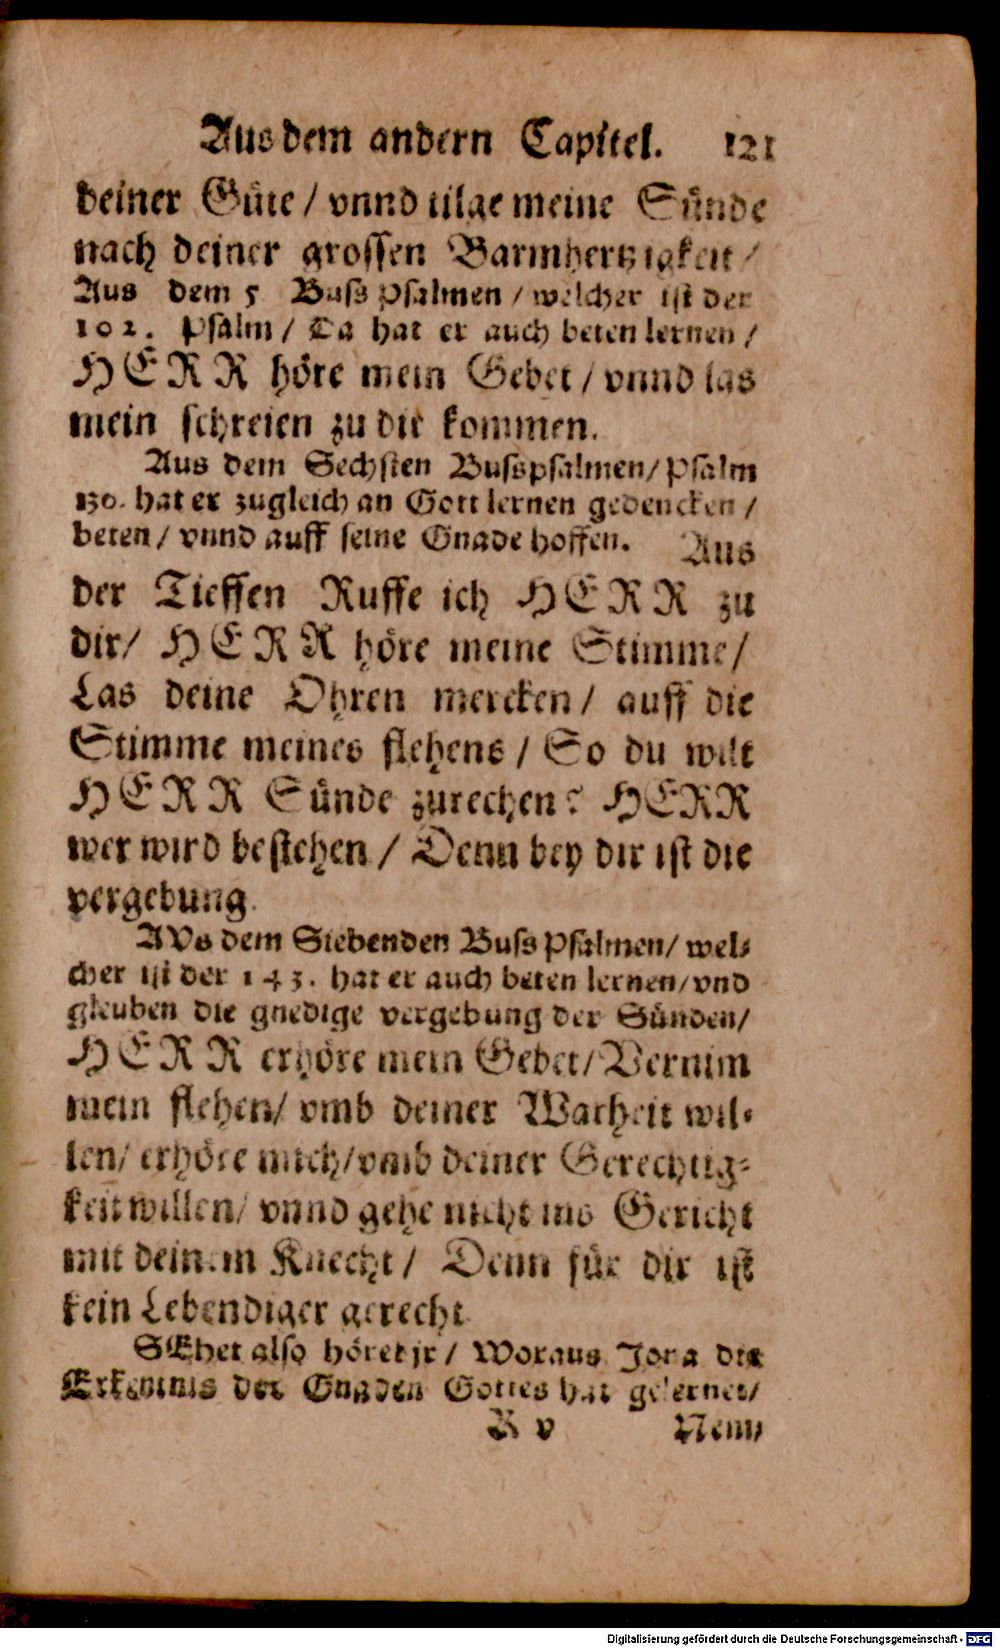 Aus dem andern Capitel. 121
deiner Güte / vnnd tilge meine Sünde
nach deiner grossen Barmhertzigkeit /
Aus dem 5 Buss Psalmen / welcher ist der
102. Psalm / Da hat er auch beten lernen /
HERR höre mein Gebet / vnnd las
mein schreien zu dir kommen.
Aus dem Sechsten Busspsalmen / Psalm
130. hat er zugleich an Gott lernen gedencken /
beten / vnnd auff seine Gnade hoffen. Aus
der Tieffen Ruffe ich HERR zu
dir / HERR höre meine Stimme /
Las deine Ohren mercken / auff die
Stimme meines flehens / So du wilt
HERR Sünde zurechen? HERR
wer wird bestehen / Denn bey dir ist die
vergebung.
AVs dem Siebenden Buss Psalmen / wel-
cher ist der 143. hat er auch beten lernen / vnd
gleuben die gnedige vergebung der Sünden /
HERR erhöre mein Gebet / Vernim
mein flehen / vmb deiner Warheit wil-
len / erhöre mich / vmb deiner Gerechtig-
keit willen / vnnd gehe nicht ins Gericht
mit deinem Knecht / Denn für dir ist
kein Lebendiger gerecht.
SEhet also höret jr / Woraus Jona die
Erkentnis der Gnaden Gottes hat gelernet /
R v Nemu
Digitalisierung gefördert durch die Deutsche Forschungsgemeinschaft - DFG